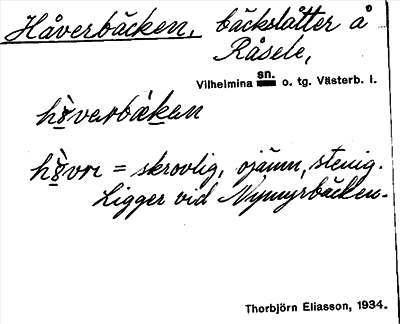 Håverbäcken, bäckslåtter å
Råsele,
Vilhelmina sn. o. tg. Västerb. l.
hå̀verbäken
hå̀vr = skrovlig, ojämn, stenig.
Ligger vid Nymyrbäcken.
Thorbjörn Eliasson, 1934.